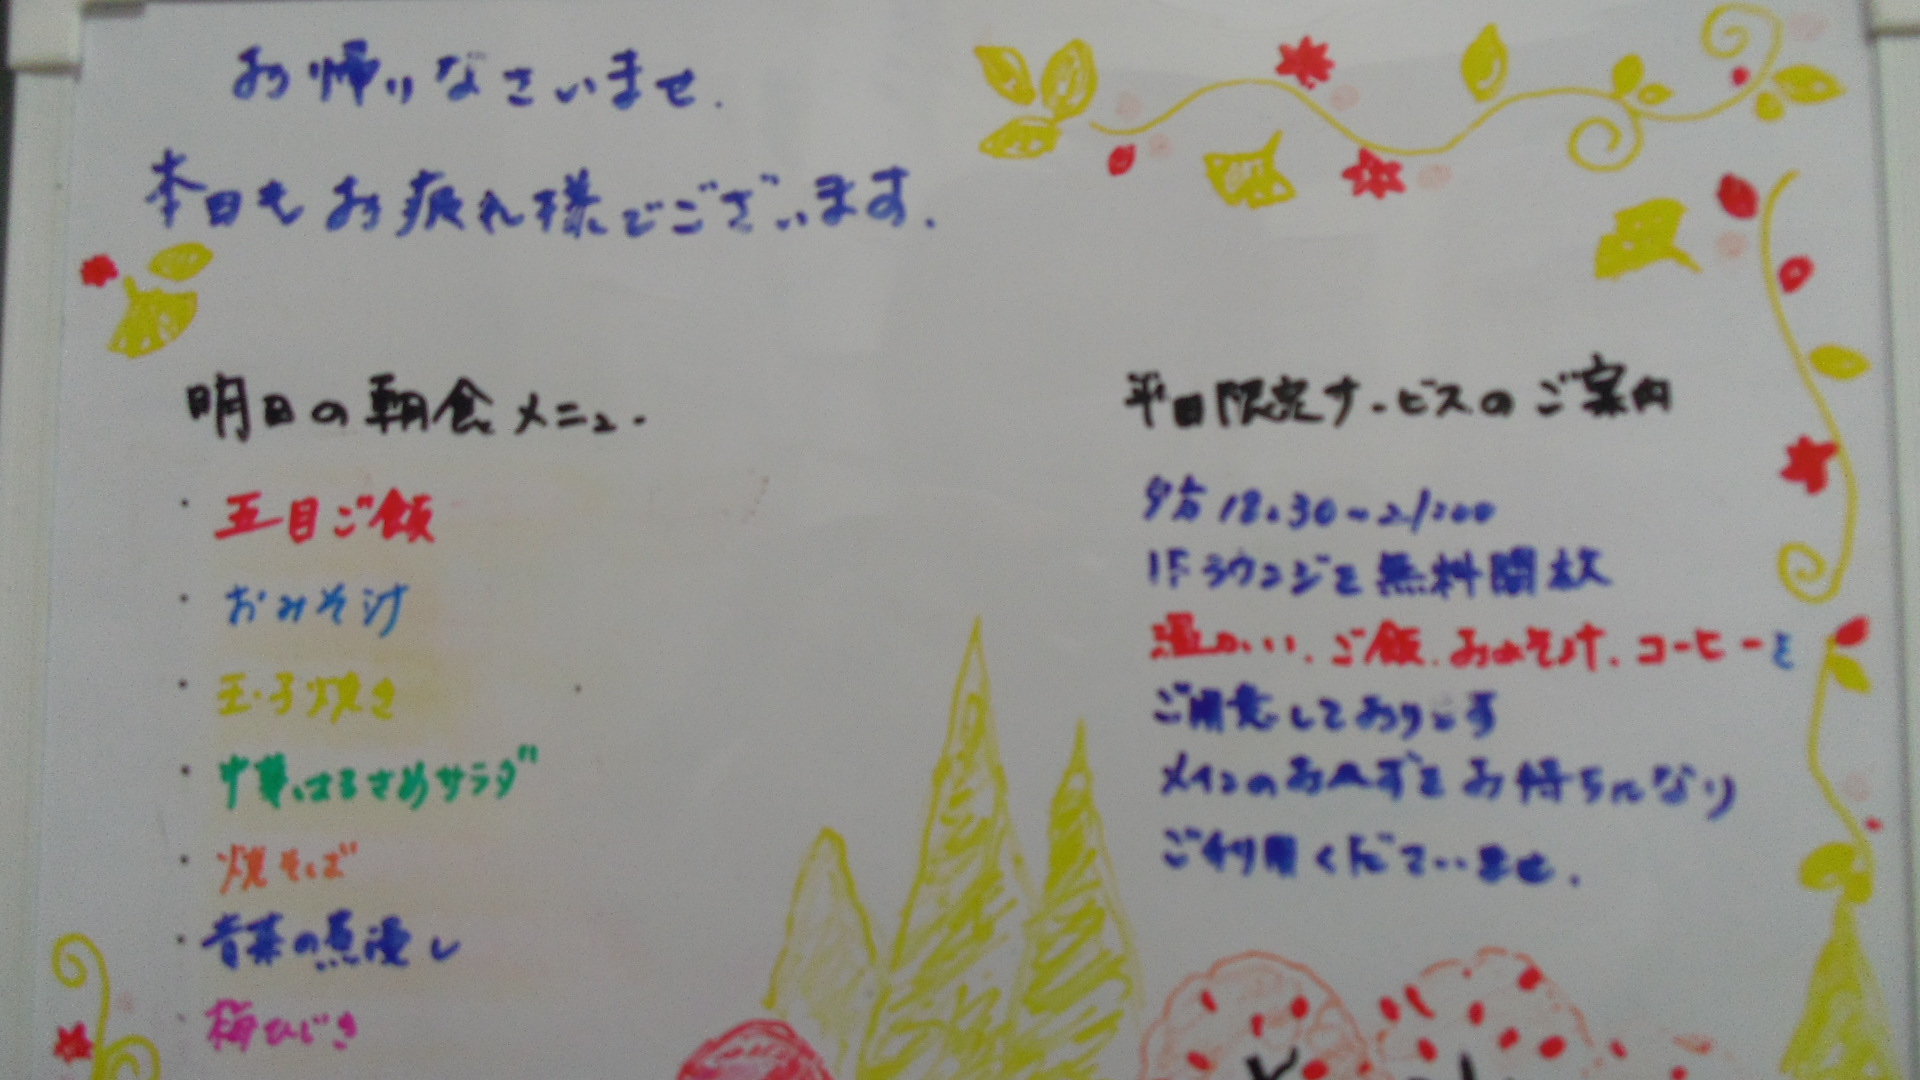 お帰りなさいませ.
本日もお疲れ様でございます.
明日の朝食メニュー
・五目ご飯
・おみそ汁
・玉子焼き
・中華はるさめサラダ
・焼そば
・青菜の煮浸し
・梅ひじき
平日限定サービスのご案内
夕方 18:30~21:00
1Fラウンジを無料開放
温かい、ご飯、おみそ汁、コーヒーを
ご用意しております
メインのおかずをお持ちになり
ご利用くださいませ.